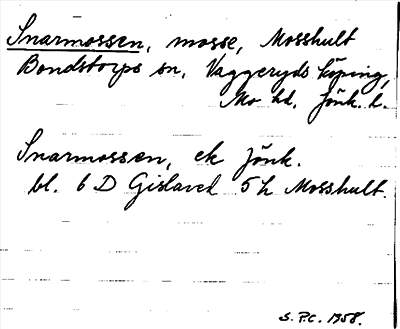 Snarmossen, mosse, Mosshult
Bondstorps sn, Vaggeryds köping,
Mo hd. Jönk. l.
Snarmossen, ek Jönk.
bl. 6 D Gislaved 5 h Mosshult.
S. P.C. 1958.